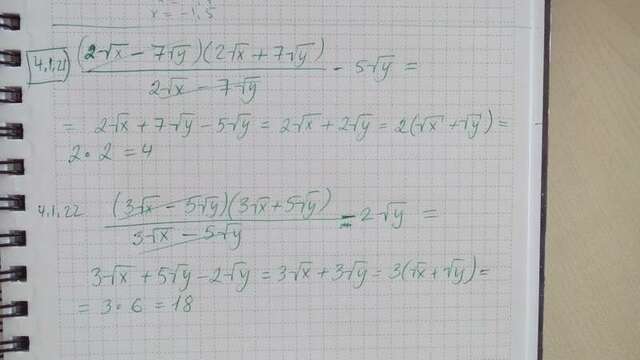 x = -1,5
4.1.21 (2√x - 7√y)(2√x + 7√y) / (2√x - 7√y) - 5√y =
= 2√x + 7√y - 5√y = 2√x + 2√y = 2(√x + √y) =
2 · 2 = 4
4.1.22 (3√x - 5√y)(3√x + 5√y) / (3√x - 5√y) - 2√y =
3√x + 5√y - 2√y = 3√x + 3√y = 3(√x + √y) =
= 3 · 6 = 18